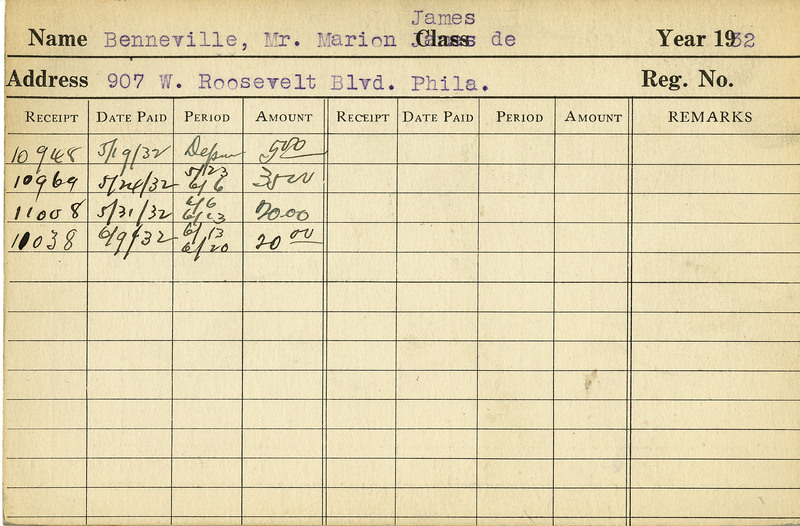 James
Name Benneville, Mr. Marion Class de Year 1932
Address 907 W. Roosevelt Blvd. Phila. Reg. No.
RECEIPT DATE PAID PERIOD AMOUNT RECEIPT DATE PAID PERIOD AMOUNT REMARKS
10948 5/19/32 500
10969 5/24/32 5/23 6/6 3500
11008 5/31/32 6/6 6/13 2000
11038 6/9/32 6/13 6/20 20 00